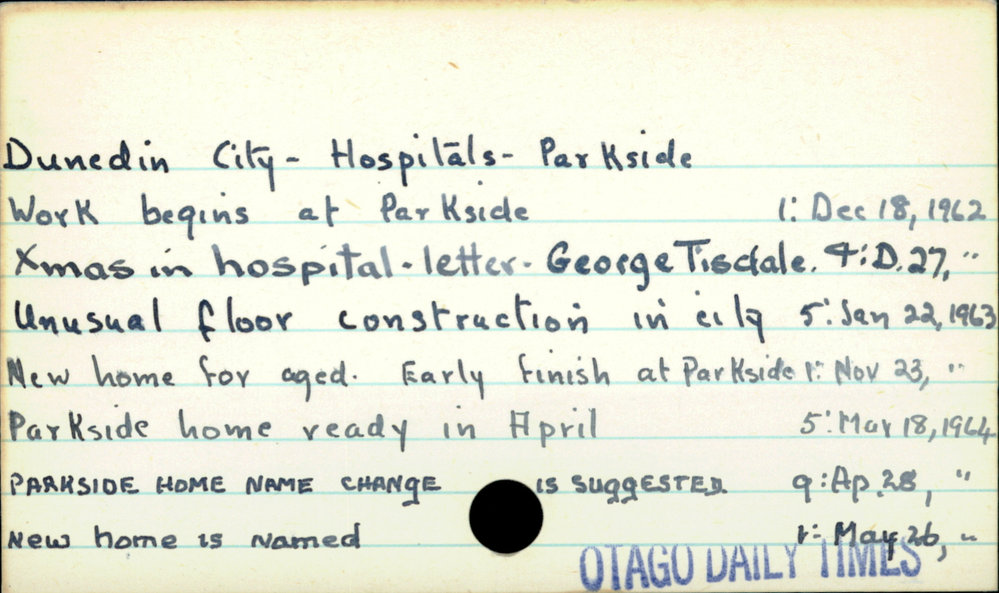 Dunedin City - Hospitals - Parkside
Work begins at Parkside 1: Dec 18, 1962
Xmas in hospital - letter - George Tisdale. 4: D. 27, "
Unusual floor construction in city 5: Jan 22, 1963
New home for aged. Early finish at Parkside 1: Nov 23, "
Parkside home ready in April 5: Mar 18, 1964
PARKSIDE HOME NAME CHANGE IS SUGGESTED 9: Ap. 28, "
New home is named 1: May 26, "
OTAGO DAILY TIMES